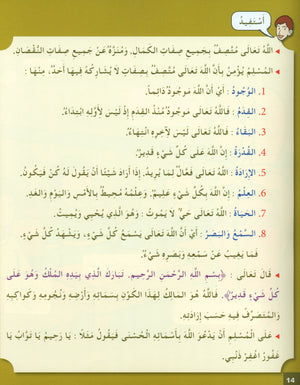 أَسْتَفِيدُ
اللَّهُ تَعَالَى مُتَّصِفٌ بِجَمِيعِ صِفَاتِ الْكَمَالِ، وَمُنَزَّهٌ عَنْ جَمِيعِ صِفَاتِ النُّقْصَانِ.
الْمُسْلِمُ يُؤْمِنُ بِأَنَّ اللَّهَ تَعَالَى مُتَّصِفٌ بِصِفَاتٍ لَا يُشَارِكُهُ فِيهَا أَحَدٌ، مِنْهَا :
1. الْوُجُودُ : أَيْ أَنَّ اللَّهَ تَعَالَى مَوْجُودٌ دَائِماً.
2. الْقِدَمُ : فَاللَّهُ تَعَالَى مَوْجُودٌ مُنْذُ الْقِدَمِ إِذْ لَيْسَ لِأَوَّلِهِ ابْتِدَاءٌ.
3. الْبَقَاءُ : فَاللَّهُ تَعَالَى لَيْسَ لِآخِرِهِ انْتِهَاءٌ.
4. الْقُدْرَةُ : إِنَّ اللَّهَ عَلَى كُلِّ شَيْءٍ قَدِيرٌ.
5. الْإِرَادَةُ : اللَّهُ تَعَالَى فَعَّالٌ لِمَا يُرِيدُ. إِذَا أَرَادَ شَيْئًا أَنْ يَقُولَ لَهُ كُنْ فَيَكُونُ.
6. الْعِلْمُ : إِنَّ اللَّهَ بِكُلِّ شَيْءٍ عَلِيمٌ. وَعِلْمُهُ مُحِيطٌ بِالْأَمْسِ وَالْيَوْمِ وَالْغَدِ.
7. الْحَيَاةُ : اللَّهُ تَعَالَى حَيٌّ لَا يَمُوتُ : وَهُوَ الَّذِي يُحْيِي وَيُمِيتُ.
8. السَّمْعُ وَالْبَصَرُ : أَيْ أَنَّ اللَّهَ تَعَالَى يَسْمَعُ كُلَّ شَيْءٍ، وَيَشْهَدُ كُلَّ شَيْءٍ.
فَمَا يَغِيبُ عَنْ سَمْعِهِ وَبَصَرِهِ شَيْءٌ.
قَالَ تَعَالَى : ﴿بِسْمِ اللَّهِ الرَّحْمَنِ الرَّحِيمِ. تَبَارَكَ الَّذِي بِيَدِهِ الْمُلْكُ وَهُوَ عَلَى
كُلِّ شَيْءٍ قَدِيرٌ﴾. فَاللَّهُ هُوَ الْمَالِكُ لِهَذَا الْكَوْنِ بِسَمَائِهِ وَأَرْضِهِ وَنُجُومِهِ وَكَوَاكِبِهِ
وَالْمُتَصَرِّفُ فِيهِ حَسَبَ إِرَادَتِهِ.
عَلَى الْمُسْلِمِ أَنْ يَدْعُوَ اللَّهَ بِأَسْمَائِهِ الْحُسْنَى فَيَقُولُ مَثَلًا : يَا رَحِيمُ يَا تَوَّابُ يَا
غَفُورُ اغْفِرْ ذَنْبِي.
14